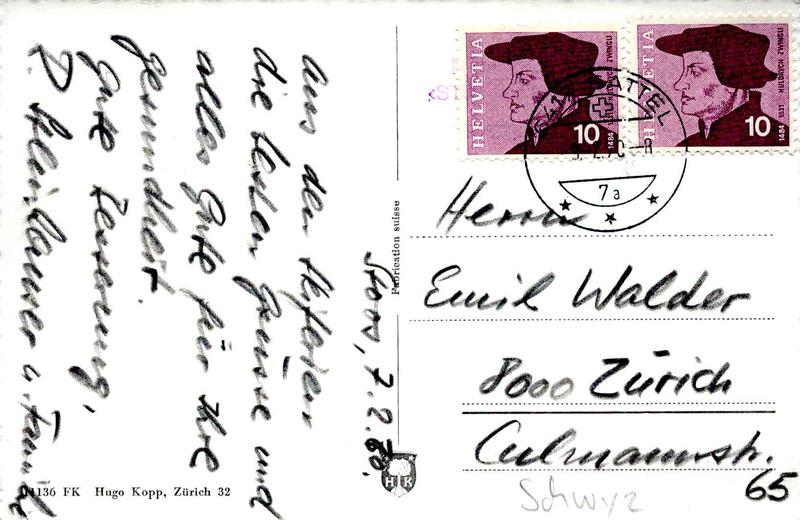 Stoos, 7.2.70.
Aus den Skiferien
die besten Grüsse und
alles Gute für Ihre
Gesundheit.
Gute Besserung,
u. Familie
Fabrication suisse
11136 FK Hugo Kopp, Zürich 32
HK
HELVETIA
10
1484 1531 HULDRYCH ZWINGLI
HELVETIA
10
1484 1531 HULDRYCH ZWINGLI
SATTEL
7a
Herrn
Emil Walder
8000 Zürich
Culmannstr.
65
Schwyz